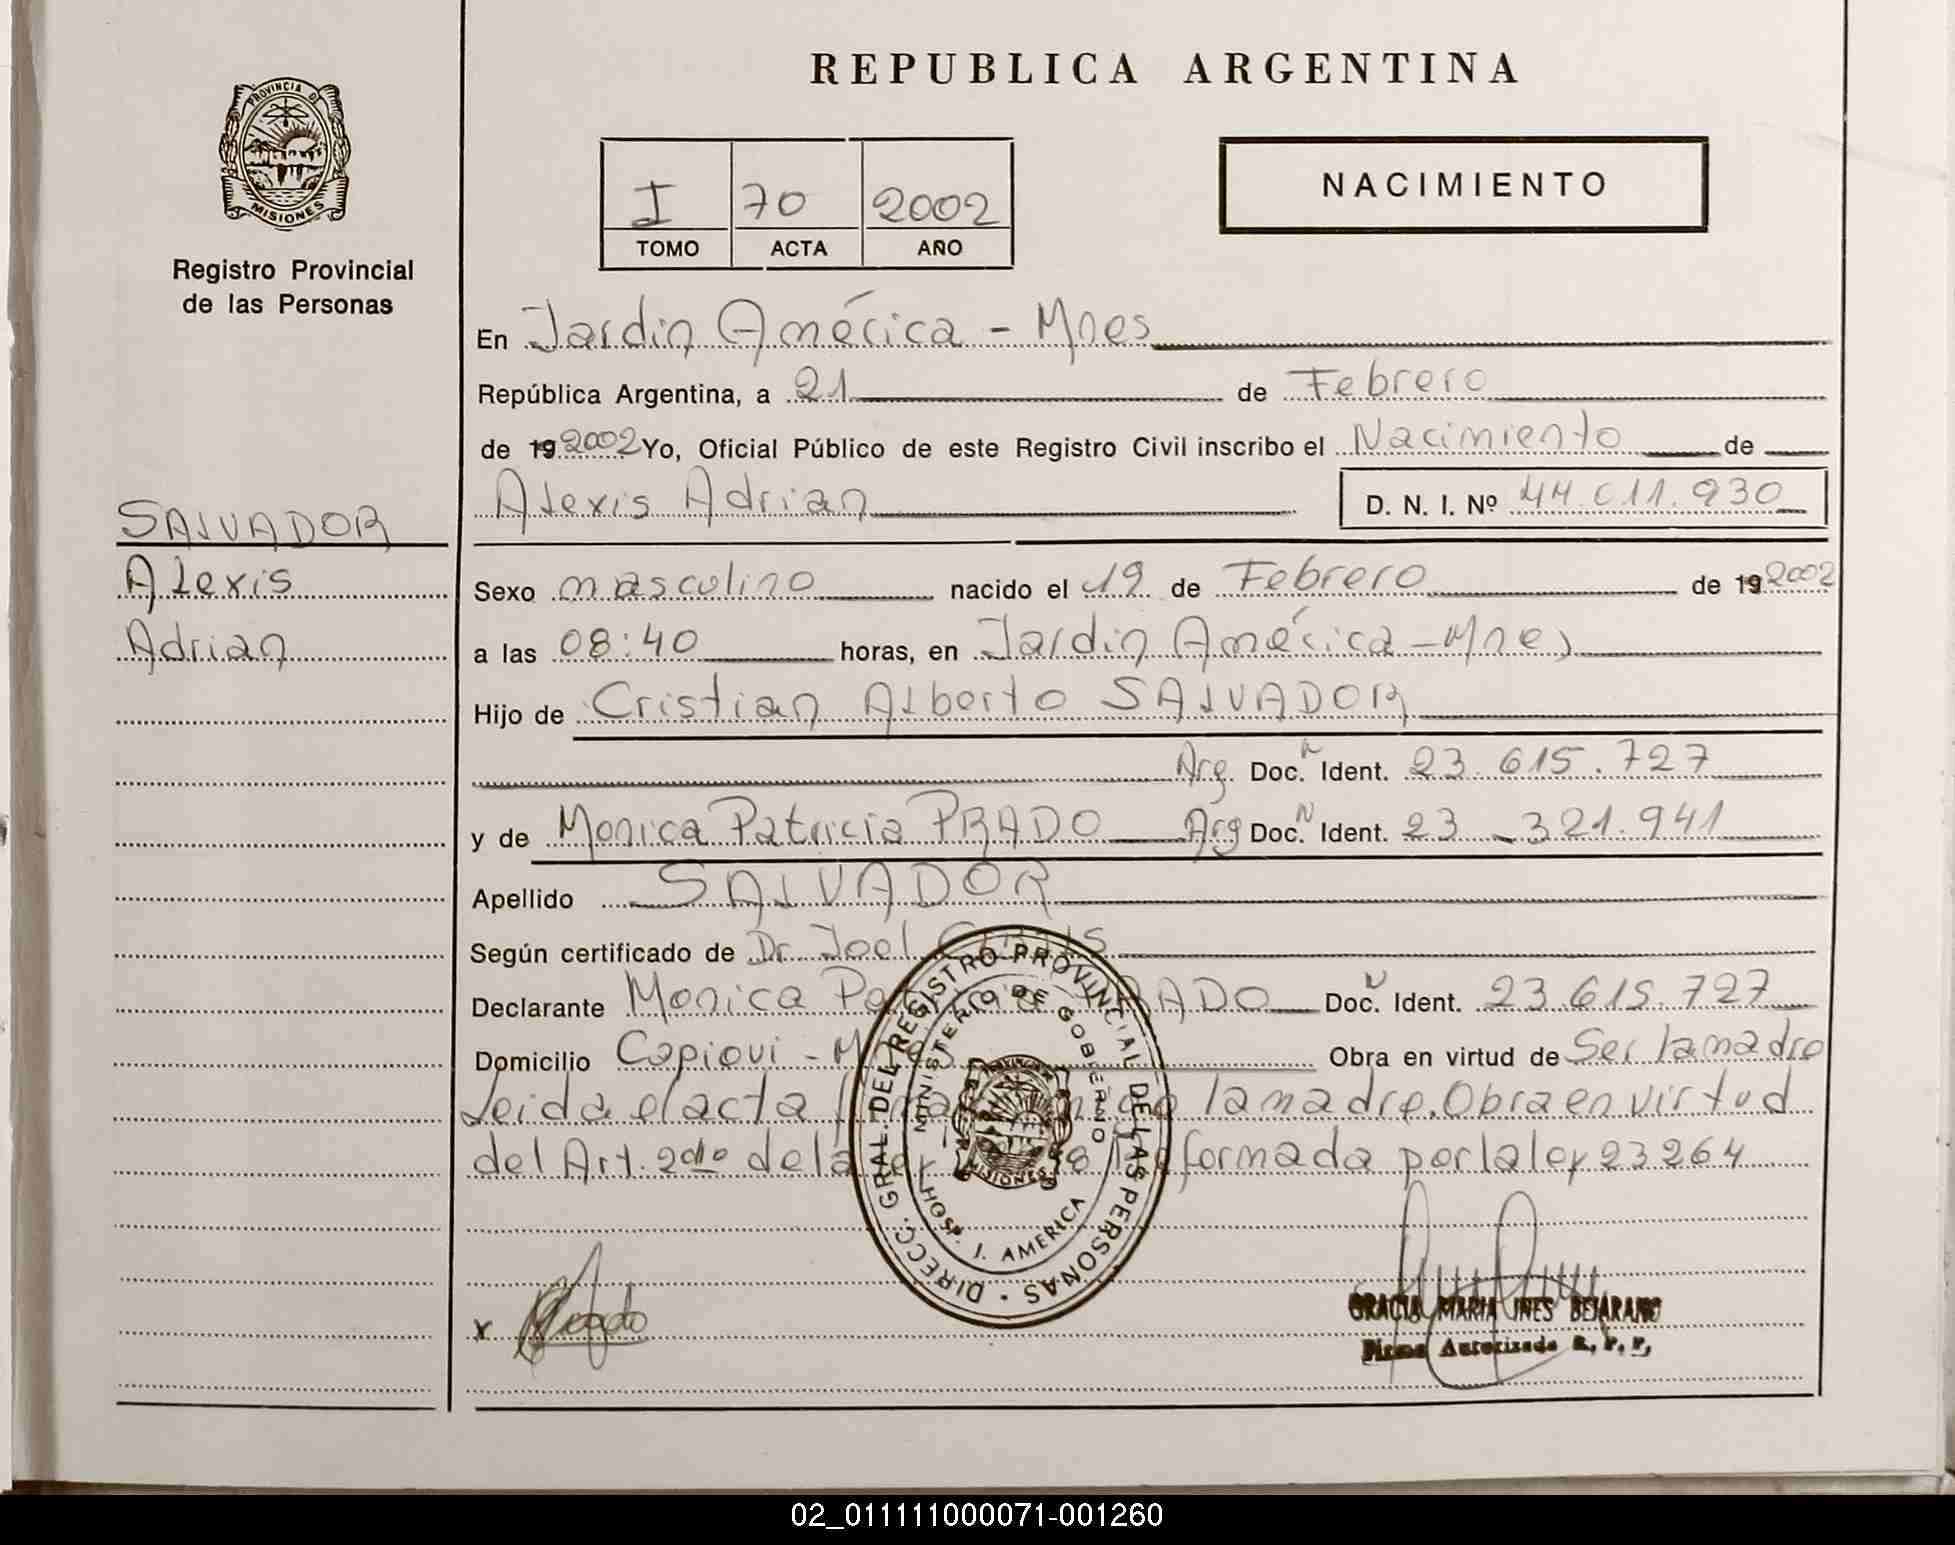 REPUBLICA ARGENTINA
PROVINCIA DE
MISIONES
Registro Provincial
de las Personas
I 70 2002
TOMO ACTA AÑO
NACIMIENTO
SALVADOR
Alexis
Adrian
En Jardin América - Mnes
República Argentina, a 21 de Febrero
de 19 2002 Yo, Oficial Público de este Registro Civil inscribo el Nacimiento de
Alexis Adrian D. N. I. Nº 44.011.930
Sexo masculino nacido el 19 de Febrero de 19 2002
a las 08:40 horas, en Jardin América - Mnes
Hijo de Cristian Alberto SALVADOR
Arg. Doc. N Ident. 23.615.727
y de Monica Patricia PRADO Arg Doc. N Ident. 23 - 321.941
Apellido SALVADOR
Según certificado de Dr. Joel
Declarante Monica PRADO Doc. N Ident. 23.615.727
Domicilio Capiovi - Mnes Obra en virtud de Ser la madre
Leida el acta la madre. Obra en virtud
del Art. 2do de la formada por la ley 23264
DIRECC. GRAL. DEL REGISTRO PROVINCIAL DE LAS PERSONAS
MINISTERIO DE GOBIERNO
PROVINCIA DE
MISIONES
HOSP. J. AMERICA
x Prado
GRACIA MARIA INES BEJARANO
Firma Autorizada R. P. P.
02_011111000071-001260